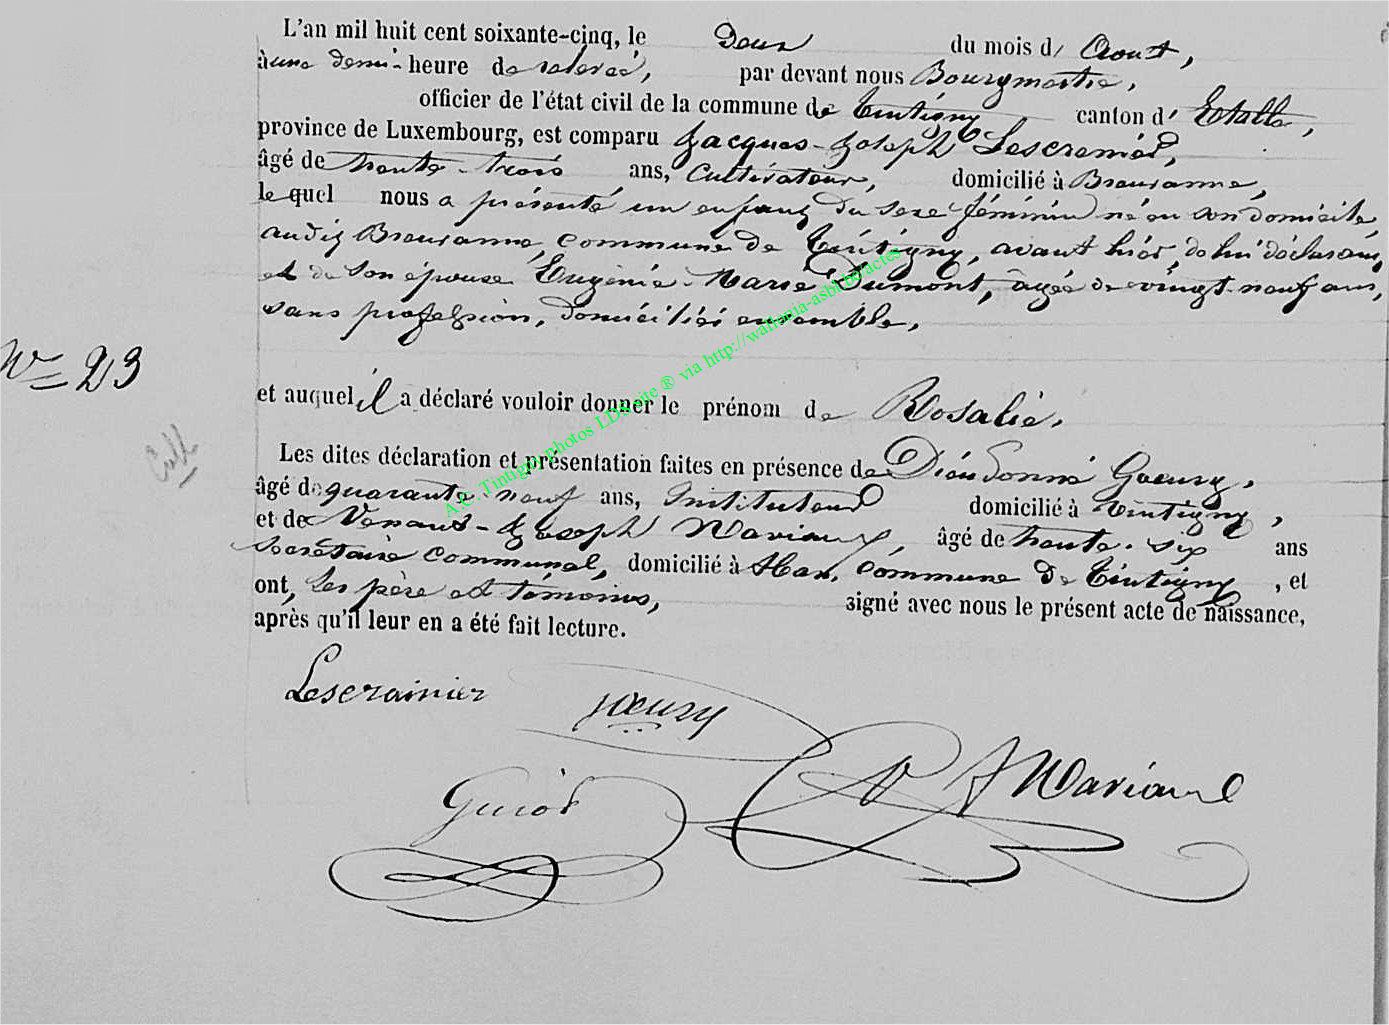 L'an mil huit cent soixante-cinq, le deux du mois d' Aout,
à une demi-heure de relevée, par devant nous Bourgmestre,
officier de l'état civil de la commune de Tintigny canton d' Etalle,
province de Luxembourg, est comparu Jacques-Joseph Lescrenier,
âgé de trente-trois ans, Cultivateur, domicilié à Breuvanne,
le quel nous a présenté un enfant du sexe féminin né en son domicile,
audit Breuvanne, commune de Tintigny, avant hier, de lui déclarant,
et de son épouse Eugénie-Marie Dumont, âgée de vingt-neuf ans,
sans profession, domiciliés ensemble,
N= 23
et auquel il a déclaré vouloir donner le prénom de Rosalie.
Les dites déclaration et présentation faites en présence de Dieudonné Goeury,
âgé de quarante-neuf ans, Instituteur domicilié à Tintigny,
et de Venant-Joseph Mariaux, âgé de trente-six ans
secrétaire communal, domicilié à Han, commune de Tintigny, et
ont, les père et témoins, signé avec nous le présent acte de naissance,
après qu'il leur en a été fait lecture.
Lescrainier Goeury
V J Mariaux
Guiot
A.C. Tintigny photos LDS site ® via http://wallonia-asbl.be/actes